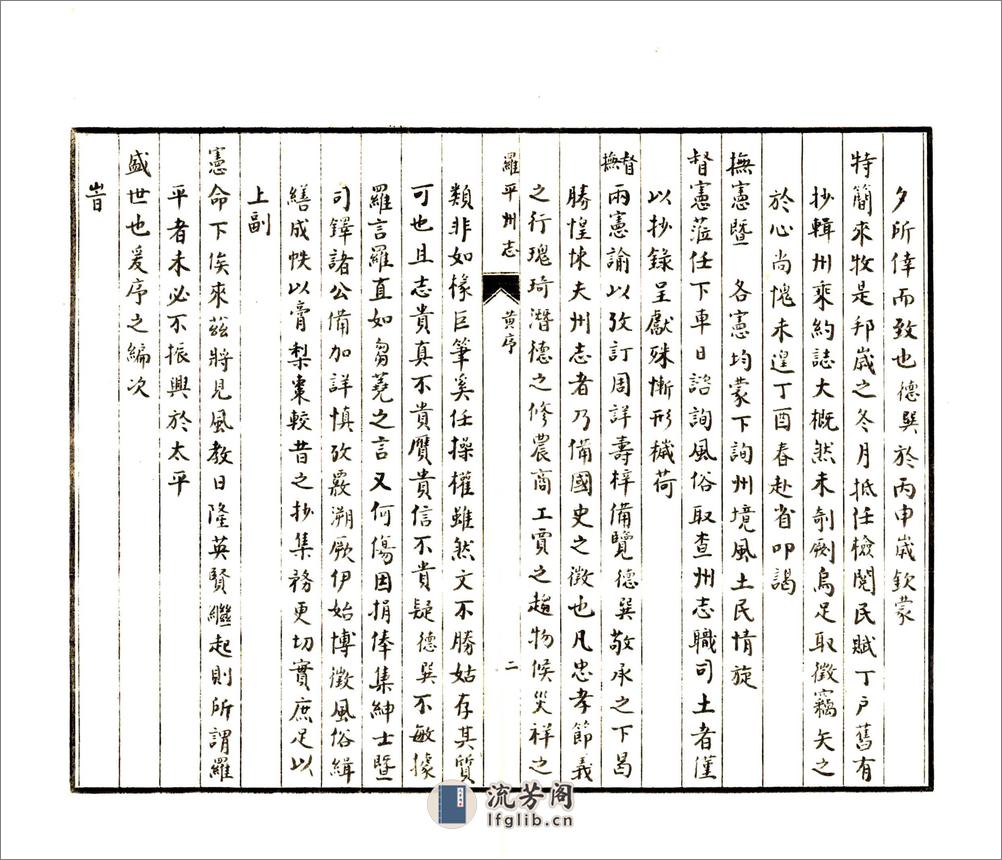 夕所倖而致也德巽於丙申歲欽蒙
特簡來牧是邦歲之冬月抵任檢閱民賦丁戶舊有
抄輯州乘約誌大概然未剞劂烏足取徵竊矢之
於心尚惓未遑丁酉春赴省叩謁
撫憲暨 各憲均蒙下詢州境風土民情旋
督憲蒞任下車日諮詢風俗取查州志職司土者僅
以抄錄呈獻殊慚形穢荷
督撫兩憲諭以攷訂周詳壽梓備覽德巽敬承之下曷
勝惶悚夫州志者乃備國史之徵也凡忠孝節義
之行瑰琦潛德之修農商工賈之趨物候災祥之
羅平州志 黄序 二
類非如椽巨筆奚任操權雖然文不勝姑存其質
可也且志貴真不貴贋貴信不貴疑德巽不敏據
羅言羅直如芻蕘之言又何傷因捐俸集紳士暨
司鐸諸公備加詳慎攷覈溯厥伊始博徵風俗緝
繕成帙以膏梨棗較昔之抄集務更切實庶足以
上副
憲命下俟來茲將見風教日隆英賢繼起則所謂羅
平者未必不振興於太平
盛世也爰序之編次
旹
流芳阁
lfglib.cn